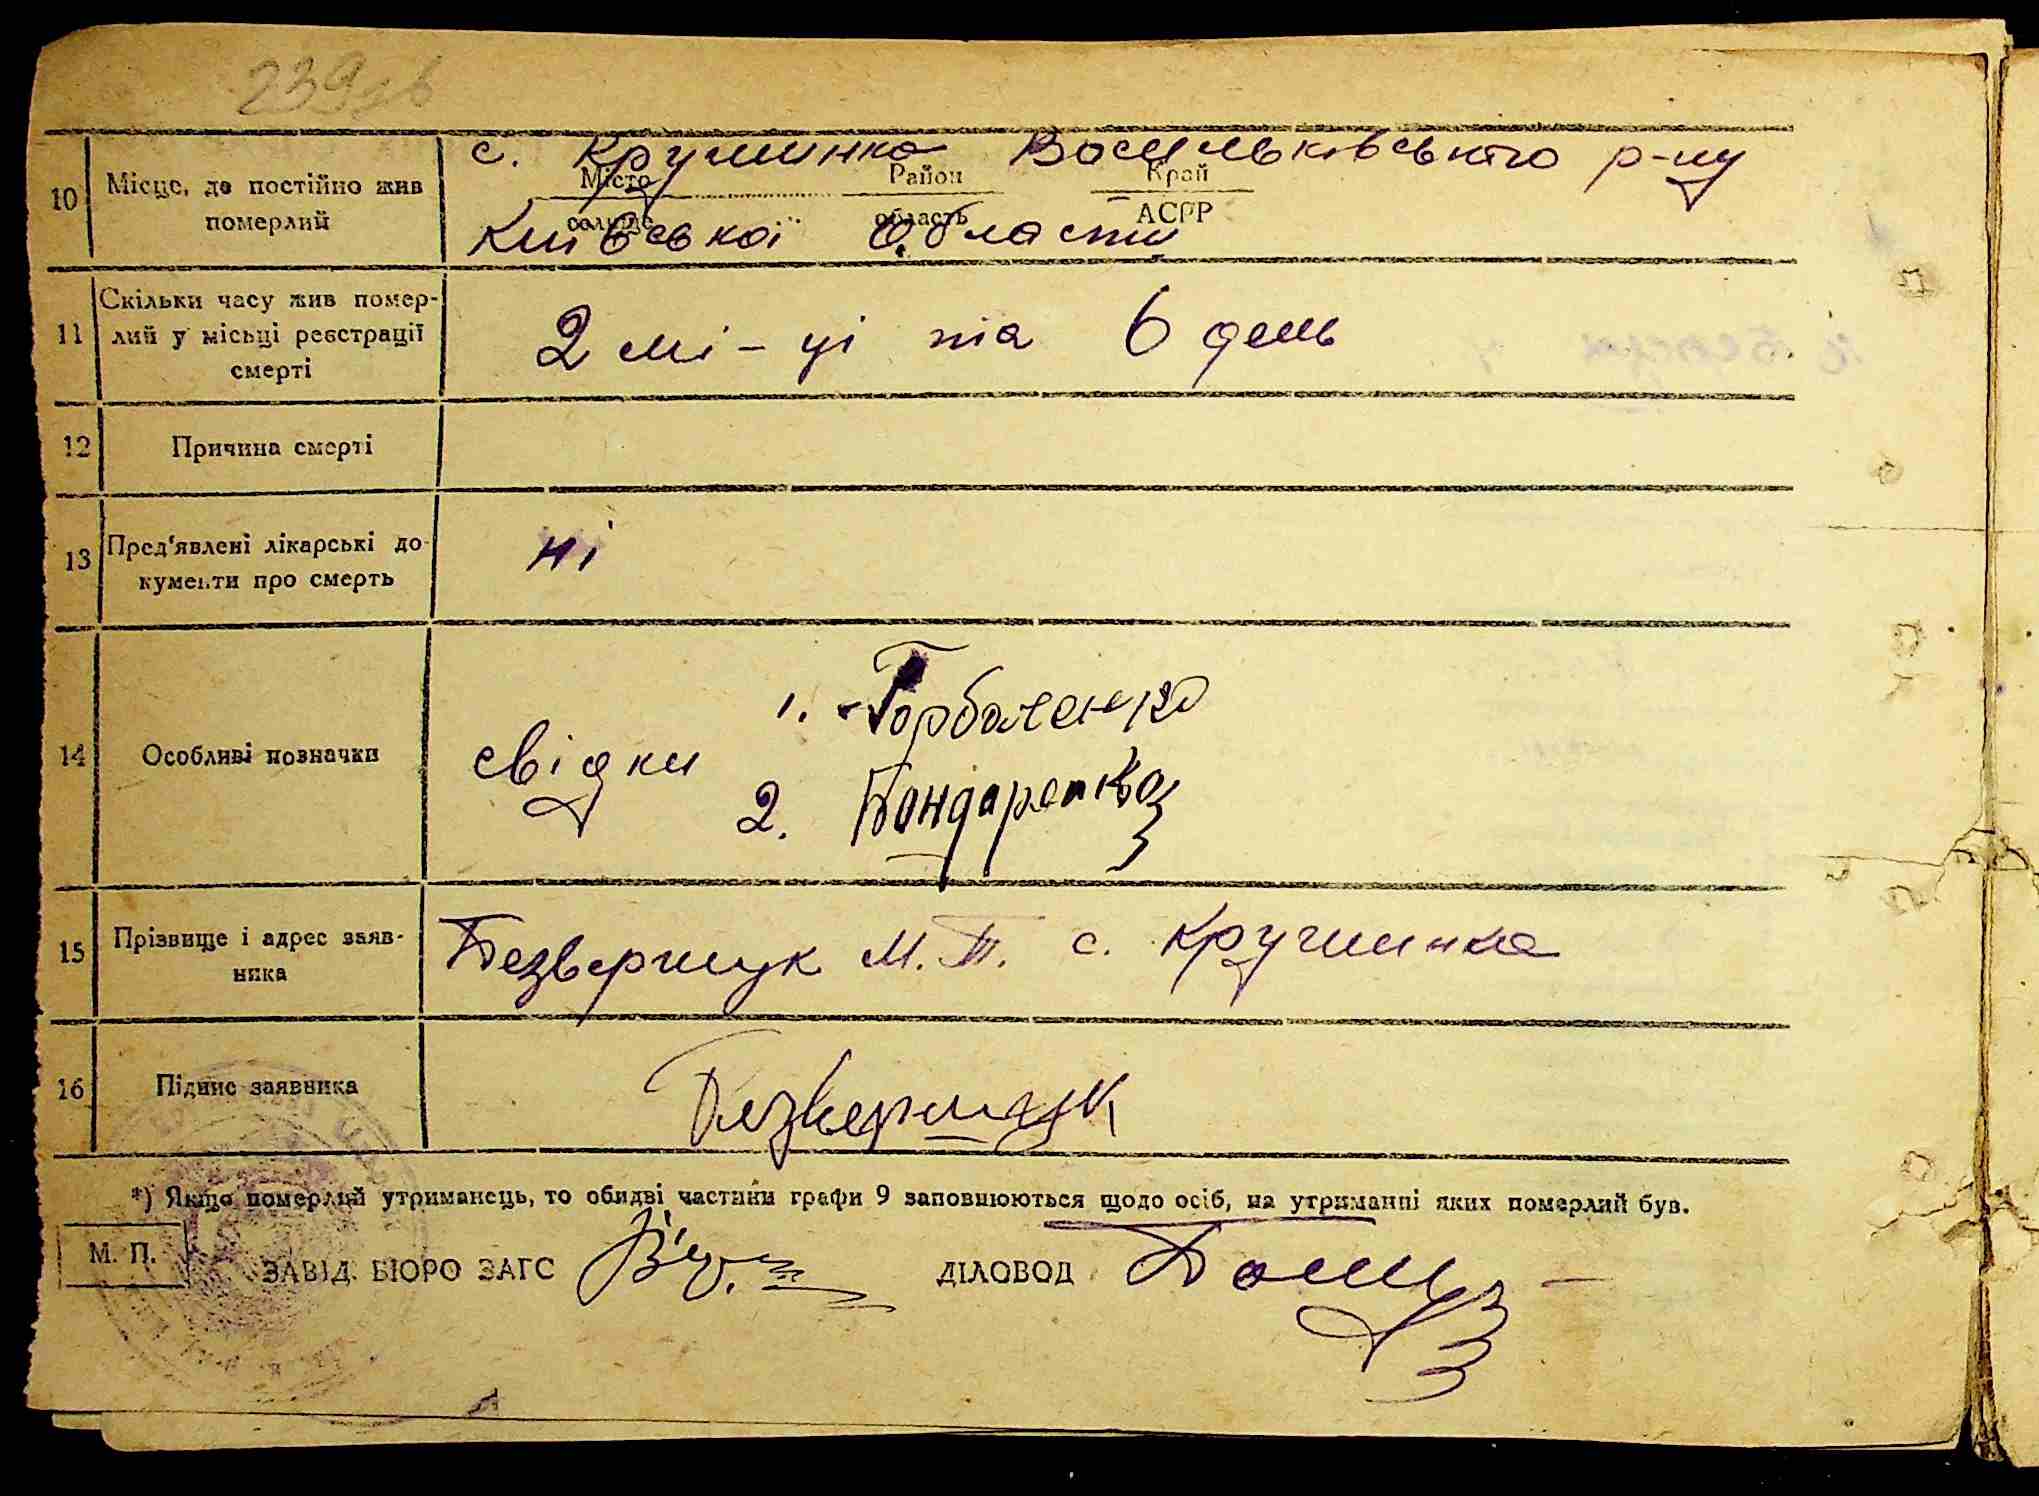 239зв
10 Місце, де постійно жив померлий
с. Крушинка Васильківського р-ну
Місто Район Край
селище область АСРР
Київської області
11 Скільки часу жив помер-
лий у місьці реєстрації
смерті
2 мі-ці та 6 день
12 Причина смерті
13 Пред'явлені лікарські до-
кументи про смерть
ні
14 Особливі позначки
свідки
1. Горбаченко
2. Бондаренко
15 Прізвище і адрес заяв-
ника
Безвершук М.Т. с. Крушинка
16 Підпис заявника
Безвершук
*) Якщо померлий утриманець, то обидві частини графи 9 заповнюються щодо осіб, на утриманні яких померлий був.
М. П.
ЗАВІД. БЮРО ЗАГС ДІЛОВОД